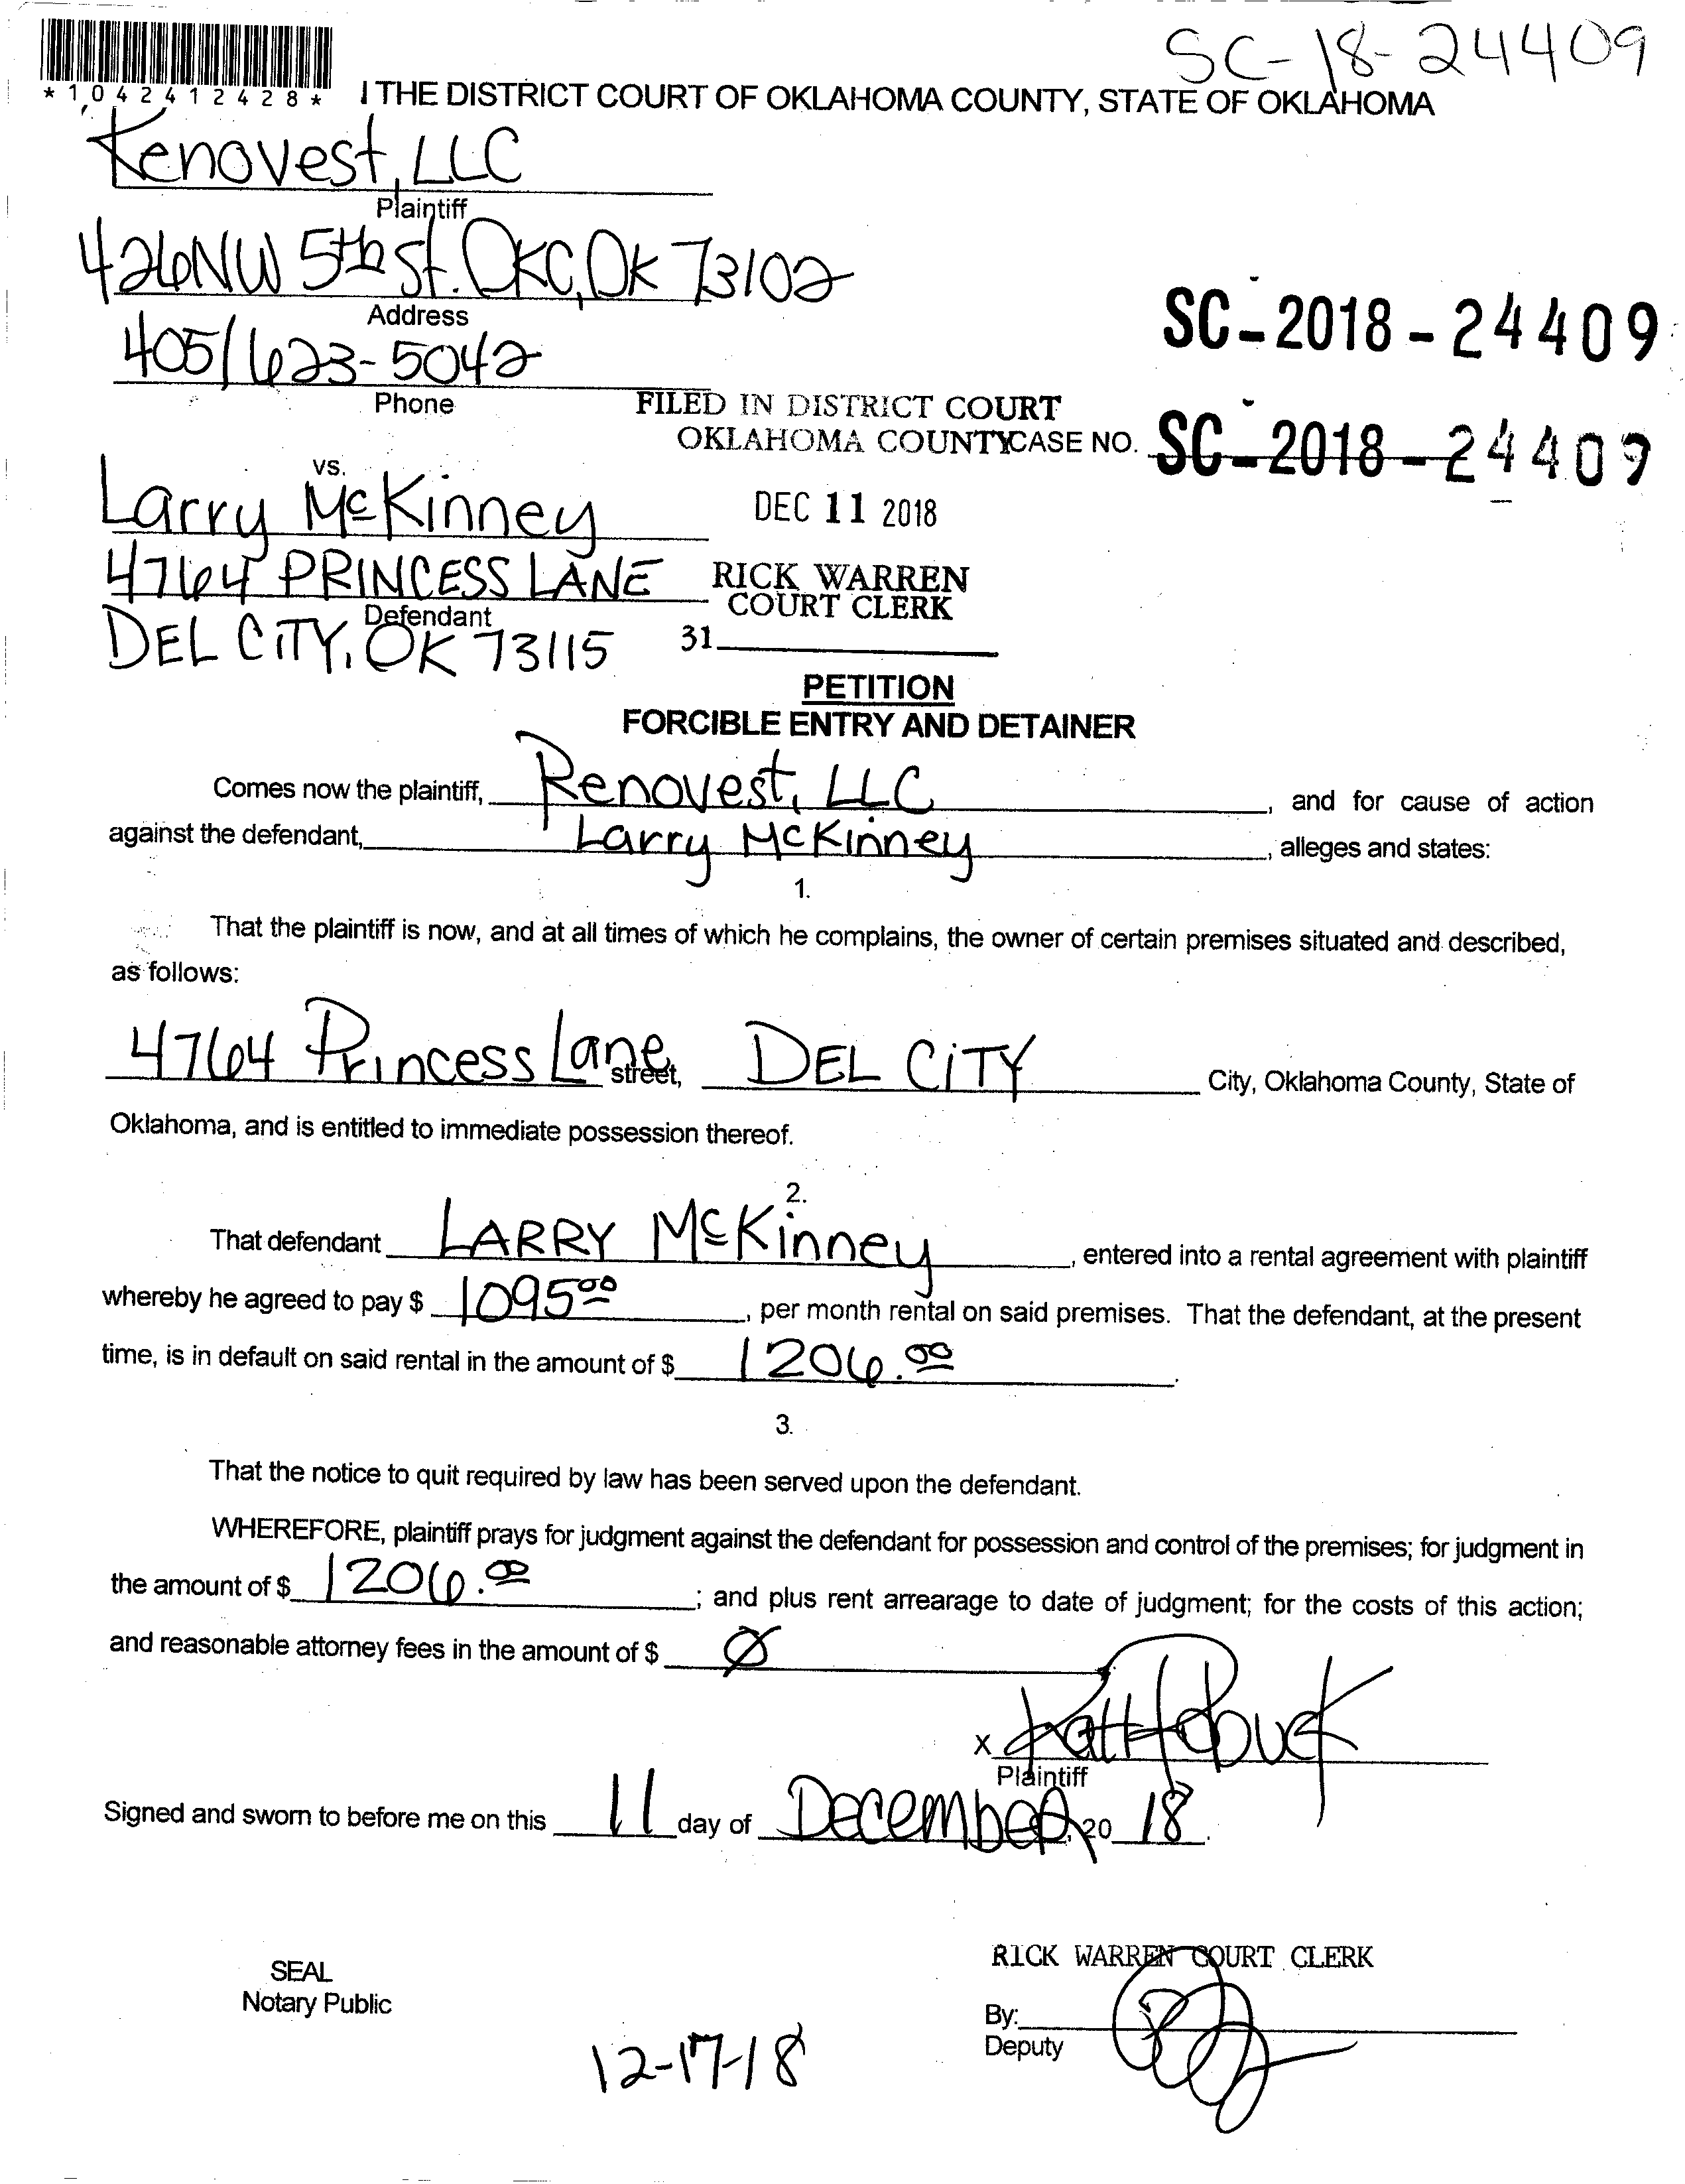 SC-18-24409
*1042412428*
I THE DISTRICT COURT OF OKLAHOMA COUNTY, STATE OF OKLAHOMA
Renovest, LLC
Plaintiff
426 NW 5th St. OKC, OK 73102
Address
SC-2018-24409
405/623-5042
Phone
FILED IN DISTRICT COURT
OKLAHOMA COUNTY CASE NO. SC-2018-24409
vs.
Larry McKinney
DEC 11 2018
4764 PRINCESS LANE
RICK WARREN
COURT CLERK
Defendant
DEL CITY, OK 73115
31
PETITION
FORCIBLE ENTRY AND DETAINER
Comes now the plaintiff, Renovest, LLC, and for cause of action
against the defendant, Larry McKinney, alleges and states:
1.
That the plaintiff is now, and at all times of which he complains, the owner of certain premises situated and described,
as follows:
4764 Princess Lane street, DEL CITY City, Oklahoma County, State of
Oklahoma, and is entitled to immediate possession thereof.
2.
That defendant LARRY McKinney, entered into a rental agreement with plaintiff
whereby he agreed to pay $ 1095.00, per month rental on said premises. That the defendant, at the present
time, is in default on said rental in the amount of $ 1206.00.
3.
That the notice to quit required by law has been served upon the defendant.
WHEREFORE, plaintiff prays for judgment against the defendant for possession and control of the premises; for judgment in
the amount of $ 1206.00; and plus rent arrearage to date of judgment; for the costs of this action;
and reasonable attorney fees in the amount of $ Ø
X
Plaintiff
Signed and sworn to before me on this 11 day of December, 20 18.
RICK WARREN COURT CLERK
SEAL
Notary Public
By:
Deputy
12-17-18